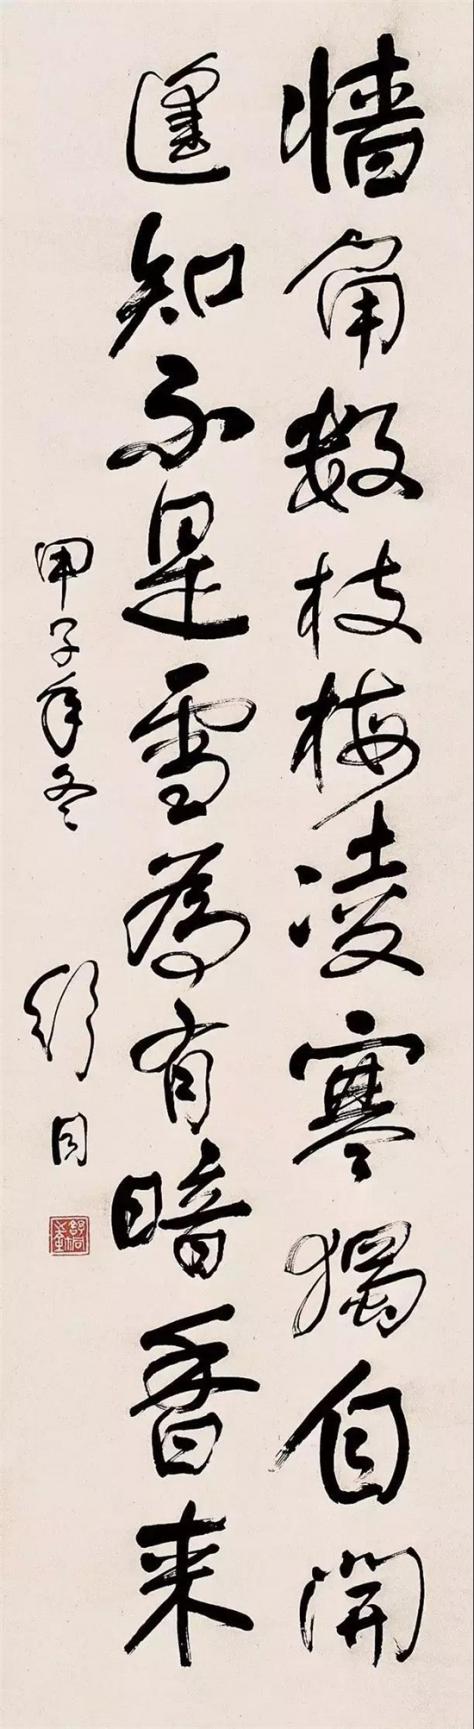 墙角数枝梅凌寒獨自開
遥知不是雪為有暗香来
甲子年冬
舒同
舒同